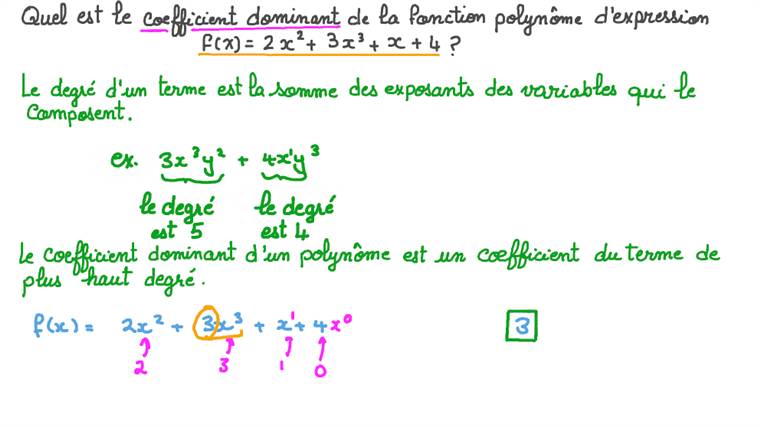 Quel est le coefficient dominant de la fonction polynôme d'expression
f(x) = 2x² + 3x³ + x + 4 ?
Le degré d'un terme est la somme des exposants des variables qui le
composent.
ex. 3x³y² + 4x¹y³
le degré le degré
est 5 est 4
Le coefficient dominant d'un polynôme est un coefficient du terme de
plus haut degré.
f(x) = 2x² + 3x³ + x¹ + 4x⁰ 3
2 3 1 0